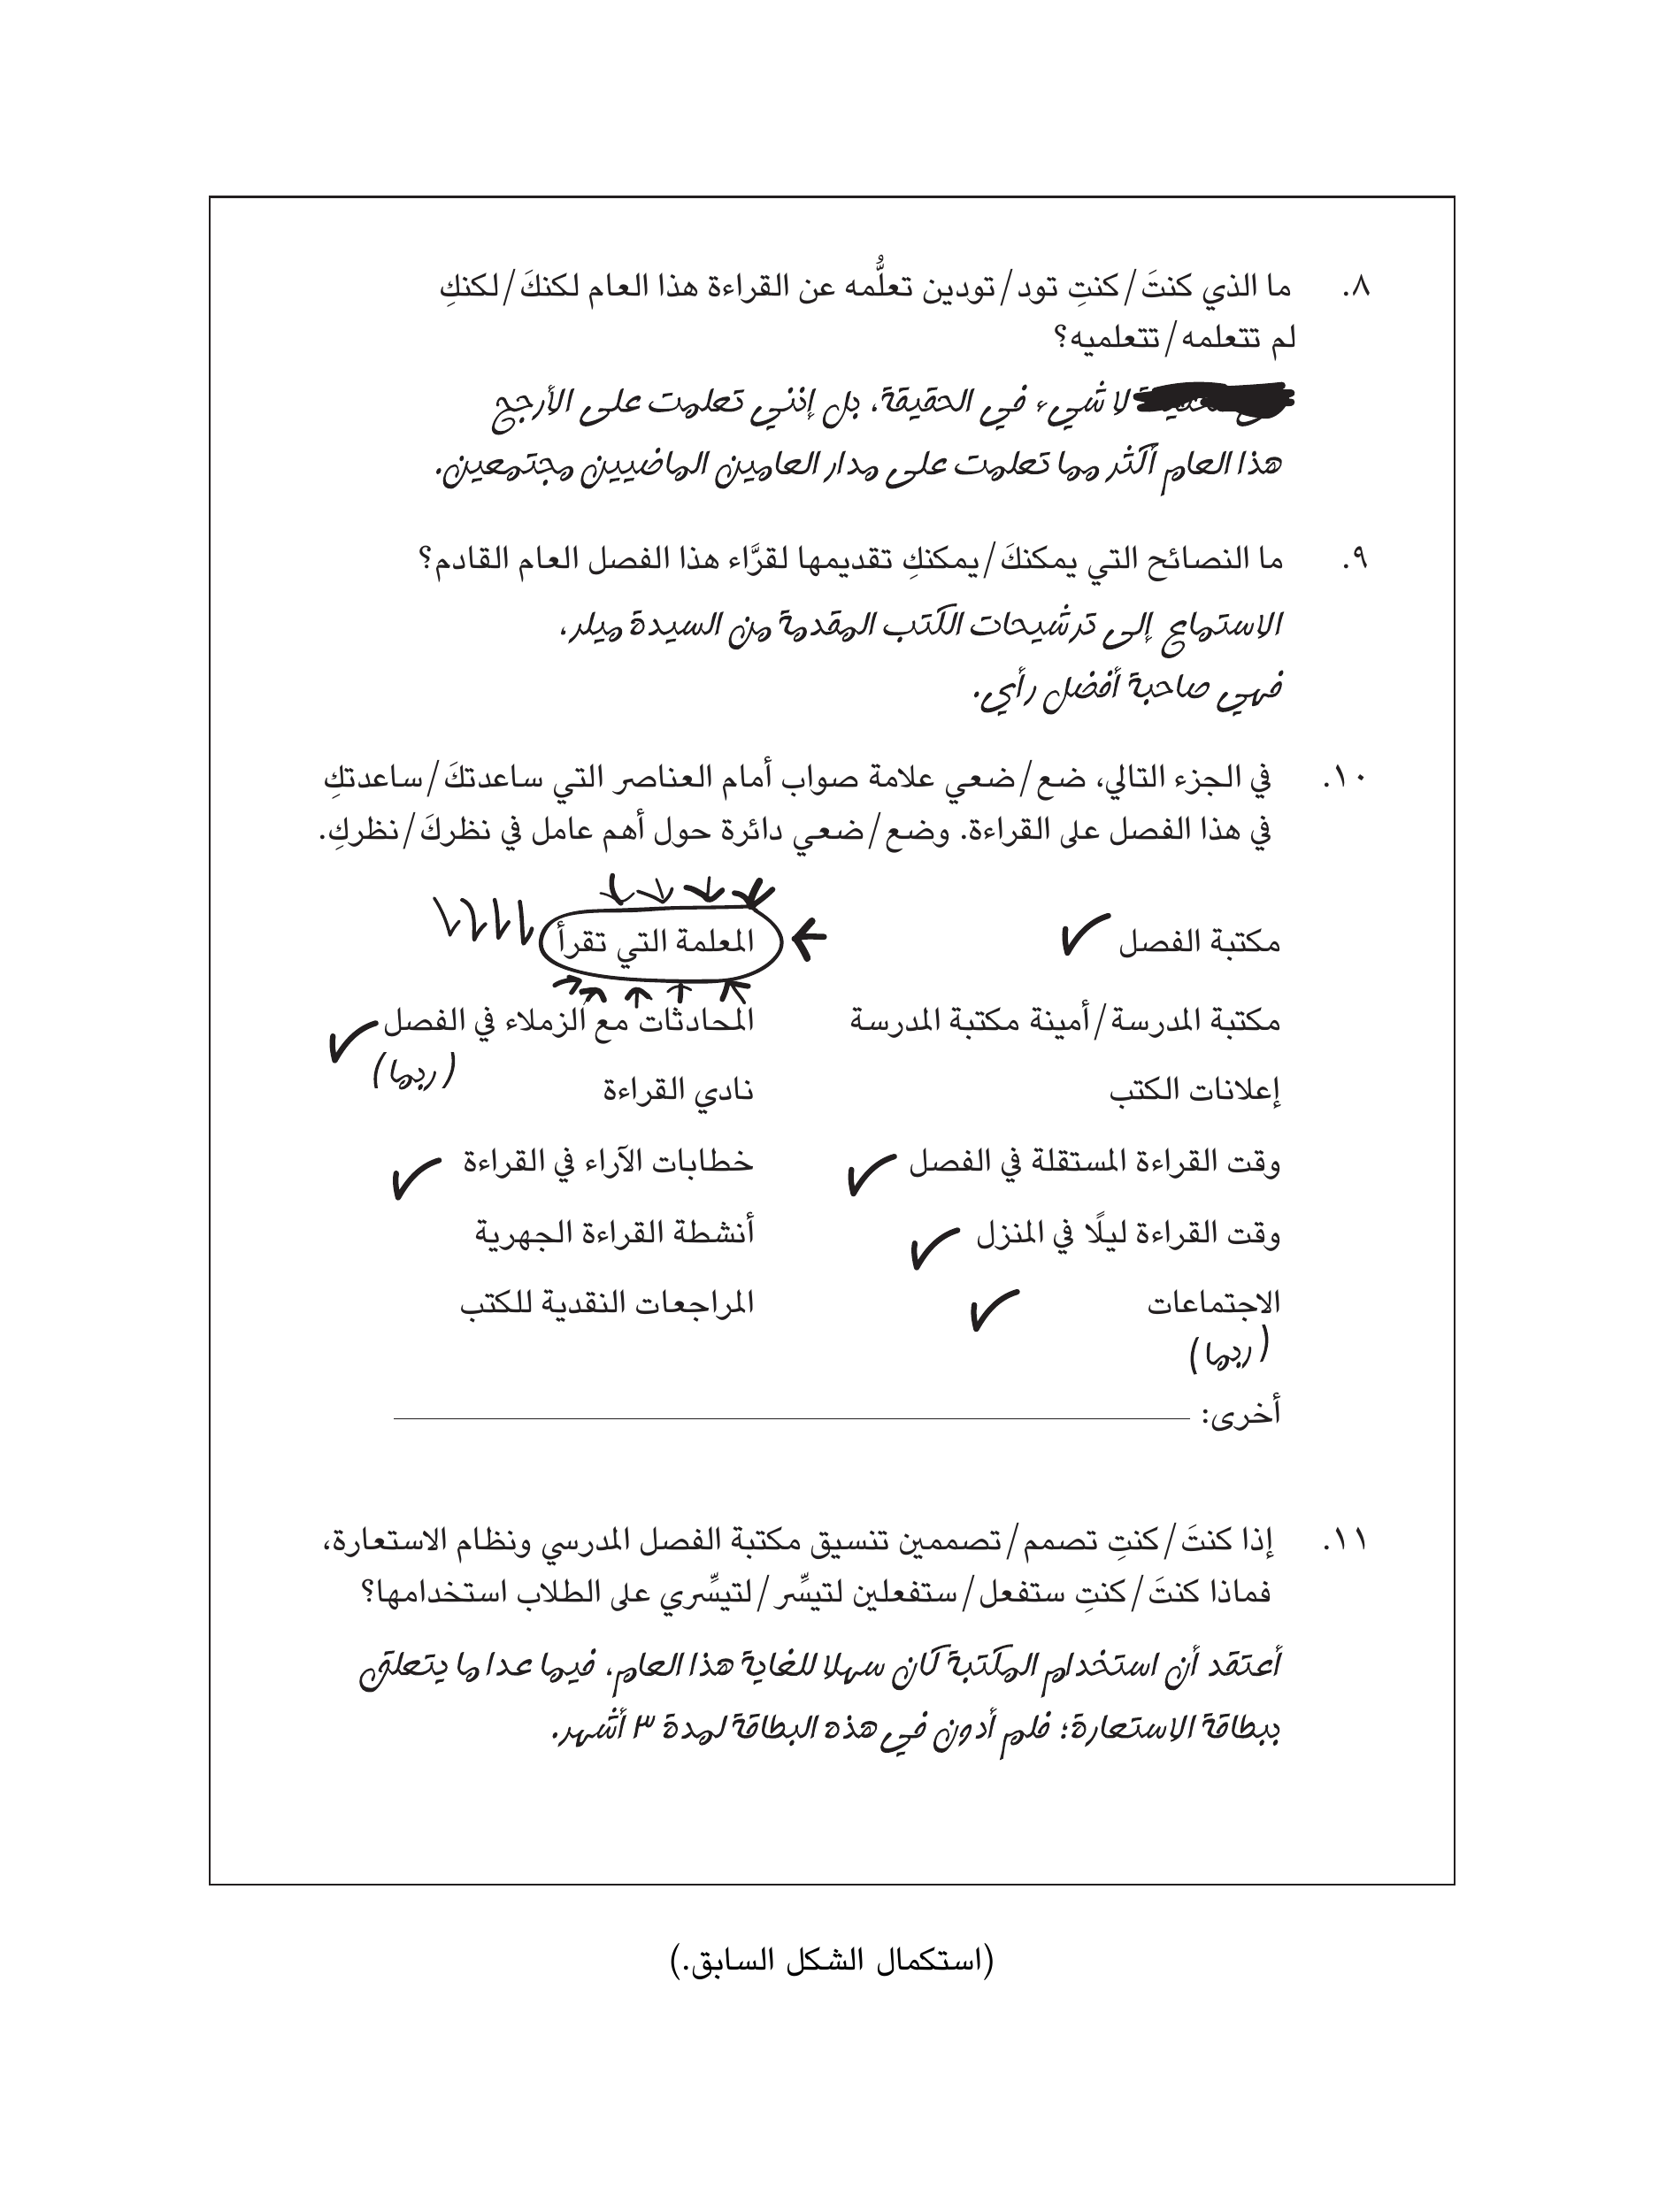 ٨. ما الذي كنتَ/كنتِ تود/تودين تعلُّمه عن القراءة هذا العام لكنكَ/لكنكِ
لم تتعلمه/تتعلميه؟
لا شيء في الحقيقة، بل إنني تعلمت على الأرجح
هذا العام أكثر مما تعلمت على مدار العامين الماضيين مجتمعين.
٩. ما النصائح التي يمكنكَ/يمكنكِ تقديمها لقرَّاء هذا الفصل العام القادم؟
الاستماع إلى ترشيحات الكتب المقدمة من السيدة ميلر،
فهي صاحبة أفضل رأي.
١٠. في الجزء التالي، ضع/ضعي علامة صواب أمام العناصر التي ساعدتكَ/ساعدتكِ
في هذا الفصل على القراءة. وضع/ضعي دائرة حول أهم عامل في نظركَ/نظركِ.
مكتبة الفصل ✓
المعلمة التي تقرأ
مكتبة المدرسة/أمينة مكتبة المدرسة
المحادثات مع الزملاء في الفصل ✓
(ربما)
إعلانات الكتب
نادي القراءة
وقت القراءة المستقلة في الفصل ✓
خطابات الآراء في القراءة ✓
وقت القراءة ليلًا في المنزل ✓
أنشطة القراءة الجهرية
الاجتماعات ✓
المراجعات النقدية للكتب
(ربما)
أخرى:
١١. إذا كنتَ/كنتِ تصمم/تصممين تنسيق مكتبة الفصل المدرسي ونظام الاستعارة،
فماذا كنتَ/كنتِ ستفعل/ستفعلين لتيسِّر/لتيسِّري على الطلاب استخدامها؟
أعتقد أن استخدام المكتبة كان سهلا للغاية هذا العام، فيما عدا ما يتعلق
ببطاقة الاستعارة؛ فلم أدون في هذه البطاقة لمدة ٣ أشهر.
(استكمال الشكل السابق.)